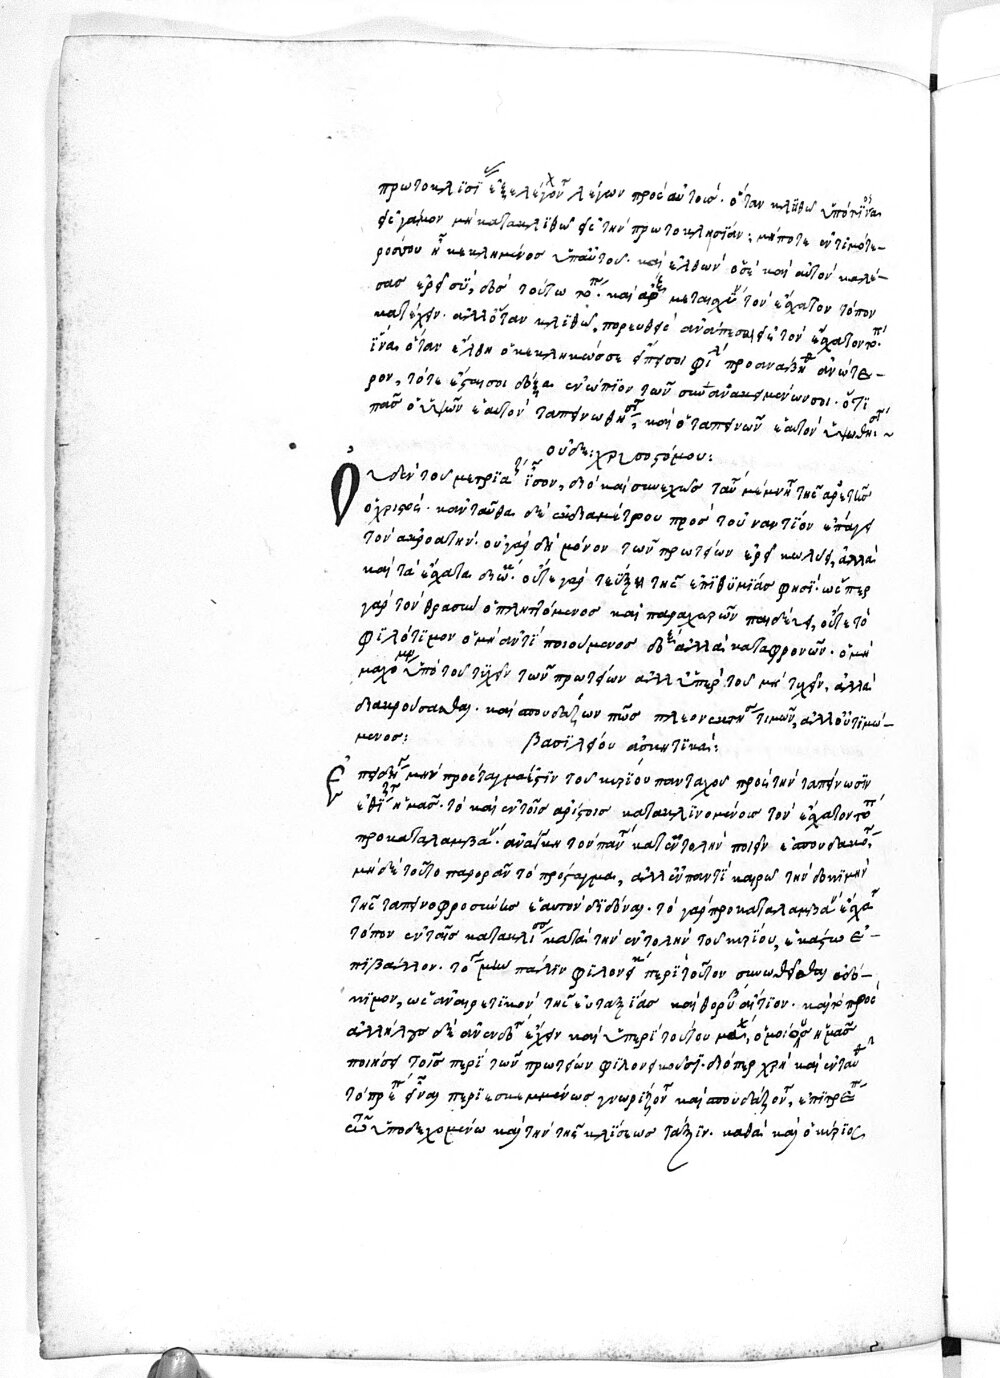 πρωτοκλισίεις ἐξελέγοντο λέγων πρὸς αὐτούς· ὅταν κληθῇς ὑπό τινος
εἰς γάμον μὴ κατακλιθῇς εἰς τὴν πρωτοκλησίαν· μήποτε ἐντιμότε-
ρός σου ᾖ κεκλημένος ὑπ' αὐτοῦ· καὶ ἐλθὼν ὁ σὲ καὶ αὐτὸν καλέ-
σας ἐρεῖ σοι, δὸς τούτῳ τόπον· καὶ ἄρξῃ μετ' αἰσχύνης τὸν ἔσχατον τόπον
κατέχειν· ἀλλ' ὅταν κληθῇς, πορευθεὶς ἀνάπεσαι εἰς τὸν ἔσχατον τόπον
ἵνα ὅταν ἔλθῃ ὁ κεκληκώς σε εἴπῃ σοι φίλε προσανάβηθι ἀνώτε-
ρον, τότε ἔσται σοι δόξα ἐνώπιον τῶν συνανακειμένων σοι· ὅτι
πᾶς ὁ ὑψῶν ἑαυτὸν ταπεινωθήσεται, καὶ ὁ ταπεινῶν ἑαυτὸν ὑψωθήσεται
χρυσοστόμου:
Οὐδὲν τοῦ μετριάζειν ἴσον, διὸ καὶ συνεχῶς ταύτης μέμνηται τῆς ἀρετῆς
ὁ χριστός· κἀνταῦθα δὲ ἐκ διαμέτρου πρὸς τοὐναντίον ἐπάγει
τὸν ἀκροατήν· οὐ γὰρ δὴ μόνον τῶν πρωτείων ἐρᾶν κωλύει, ἀλλὰ
καὶ τὰ ἔσχατα διώκειν· οὕτω γὰρ τεύξῃ τῆς ἐπιθυμίας φησί· ὥσπερ
γὰρ τὸν θρασὺν ὁ πληττόμενος καὶ παραχωρῶν παιδεύει, οὕτω τὸ
φιλότιμον ὁ μὴ ἀντιποιούμενος δόξης ἀλλὰ καταφρονῶν· ὁ μὴ
μαχόμενος ὑπὲρ τοῦ τυχεῖν τῶν πρωτείων ἀλλ' ὑπὲρ τοῦ μὴ τυχεῖν, ἀλλὰ
διακρούσασθαι· καὶ σπουδάζων πῶς πλεονεκτήσει τιμῶν, ἀλλ' οὐ τιμώ-
μενος: βασιλείου ἀσκητικά:
Ἐπειδὴ μὲν πρόσταγμά ἐστιν τοῦ κυρίου πανταχοῦ πρὸς τὴν ταπείνωσιν
ἐθίζειν ἡμᾶς· τὸ καὶ ἐν τοῖς ἀρίστοις κατακλινομένους τὸν ἔσχατον τόπον
προκαταλαμβάνειν· ἀνάγκη τὸν πάντα κατ' ἐντολὴν ποιεῖν ἐσπουδακότα,
μηδὲ τοῦτο παρορᾶν τὸ πρόσταγμα, ἀλλ' ἐν παντὶ καιρῷ
τῆς ταπεινοφροσύνης ἑαυτὸν διδόναι· τὸ γὰρ προκαταλαμβάνειν ἔσχατον
τόπον ἐν ταῖς κατακλίσεσι κατὰ τὴν ἐντολὴν τοῦ κυρίου, ἑκάστῳ ἐ-
πιβάλλον· τὸ μέντοι πάλιν φιλονείκως περὶ τοῦτον συνωθεῖσθαι ἀδό-
κιμον, ὡς ἀναιρετικὸν τῆς εὐταξίας καὶ θορύβου αἴτιον· καὶ τὸ πρὸς
ἀλλήλους δὲ ἀνενδότως ἔχειν καὶ ὑπὲρ τούτου μάχεσθαι, ὁμοίους ἡμᾶς
ποιήσει τοῖς περὶ τῶν πρωτείων φιλονεικοῦσι· διόπερ χρὴ καὶ ἐνταῦθα
τὸ πρέπον εἶναι περιεσκεμμένως γνωρίζοντας καὶ σπουδάζοντας, ἐπιτρέπειν
τῷ ὑποδεχομένῳ καὶ τὴν τῆς κλίσεως τάξιν· καθὰ καὶ ὁ κύριος